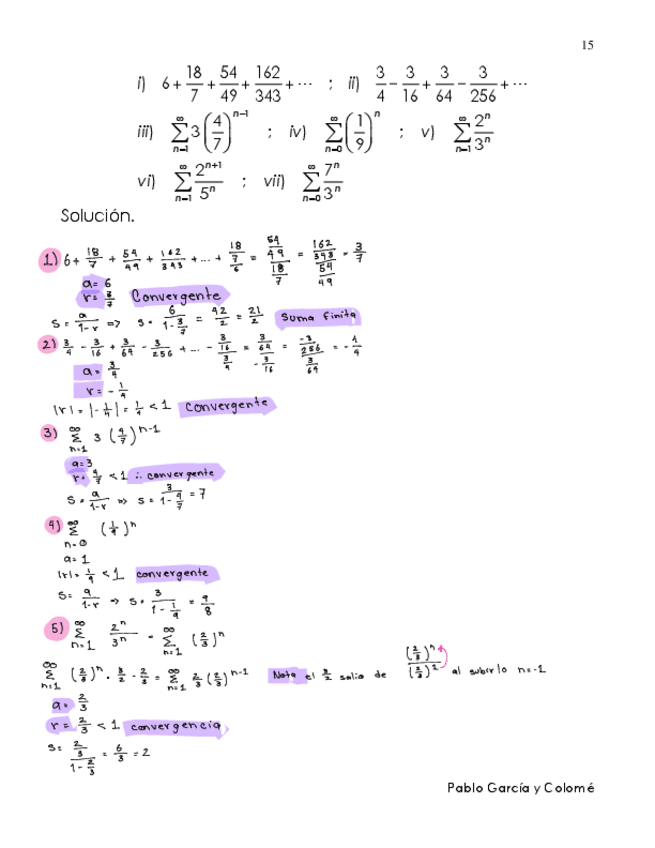 15
i) 6 + 18/7 + 54/49 + 162/343 + ⋯ ; ii) 3/4 − 3/16 + 3/64 − 3/256 + ⋯
iii) ∑_{n=1}^{∞} 3(4/7)^{n−1} ; iv) ∑_{n=0}^{∞} (1/9)^n ; v) ∑_{n=1}^{∞} 2^n/3^n
vi) ∑_{n=1}^{∞} 2^{n+1}/5^n ; vii) ∑_{n=0}^{∞} 7^n/3^n
Solución.
1) 6 + 18/7 + 54/49 + 162/343 + ... + (18/7)/6 = (54/49)/(18/7) = (162/343)/(54/49) = 3/7
a = 6
r = 3/7 Convergente
S = a/(1-r) => S = 6/(1-3/7) = 42/2 = 21/2 Suma finita
2) 3/4 - 3/16 + 3/64 - 3/256 + ... - (3/16)/(3/4) = (3/64)/(-3/16) = (-3/256)/(3/64) = -1/4
a = 3/4
r = -1/4
|r| = |-1/4| = 1/4 < 1 Convergente
3) ∑_{n=1}^{∞} 3 (4/7)^{n-1}
a = 3
r = 4/7 < 1 ∴ convergente
S = a/(1-r) => S = 3/(1-4/7) = 7
4) ∑_{n=0}^{∞} (1/9)^n
a = 1
|r| = 1/9 < 1 convergente
S = a/(1-r) => S = 3/(1-1/9) = 9/8
5) ∑_{n=1}^{∞} 2^n/3^n = ∑_{n=1}^{∞} (2/3)^n
∑_{n=1}^{∞} (2/3)^n · 3/2 · 2/3 = ∑_{n=1}^{∞} 2/3 (2/3)^{n-1} Nota el 3/2 salio de (2/3)^n/(2/3)^2 al subirlo n=-1
a = 2/3
r = 2/3 < 1 convergencia
S = (2/3)/(1-2/3) = 6/3 = 2
Pablo García y Colomé